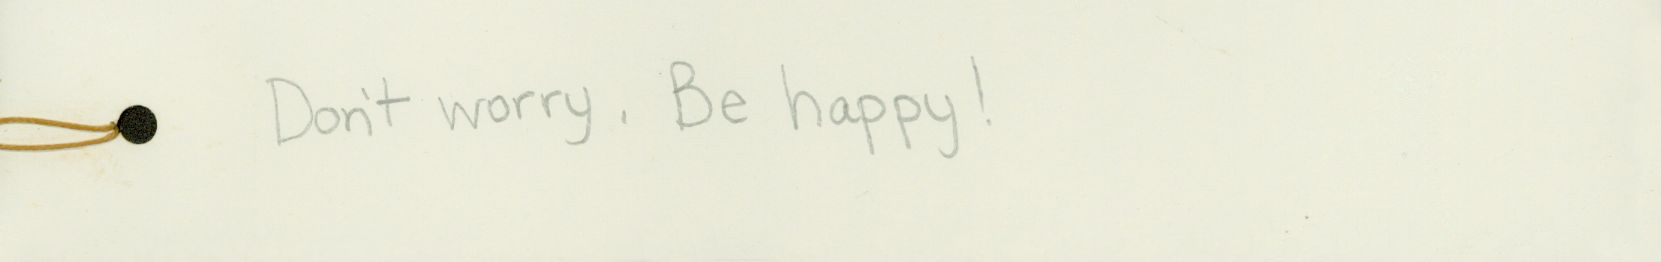 Don't worry. Be happy!